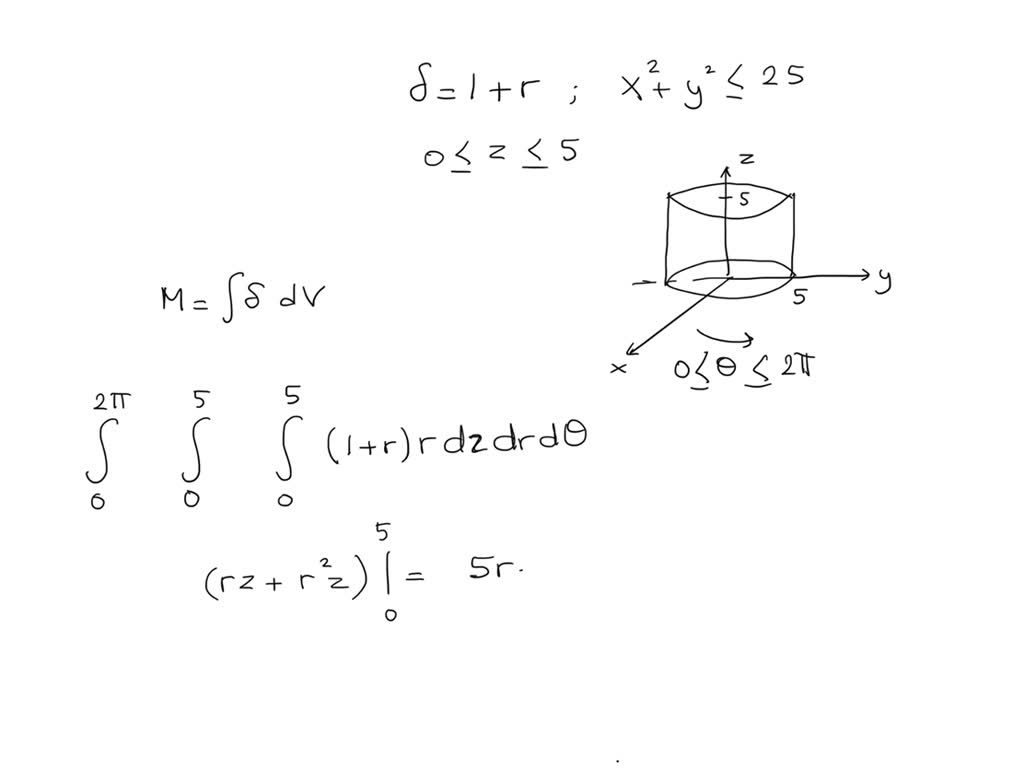 δ = 1 + r ; x² + y² ≤ 25
0 ≤ z ≤ 5
z
5
y
5
x
0 ≤ θ ≤ 2π
M = ∫ δ dV
2π 5 5
∫ ∫ ∫ (1+r) r dz dr dθ
0 0 0
5
(rz + r²z) | = 5r.
0